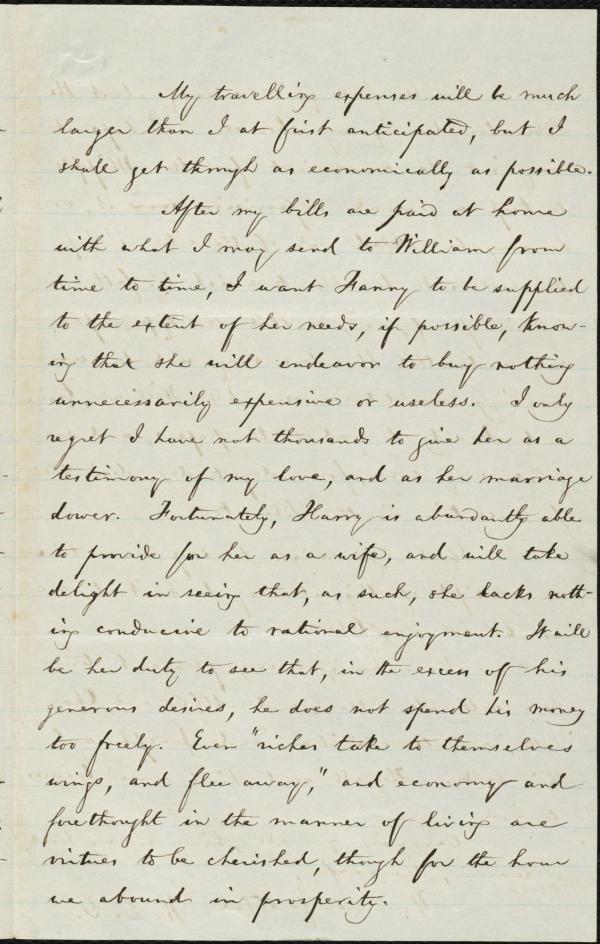 My travelling expenses will be much
larger than I at first anticipated, but I
shall get through as economically as possible.
After my bills are paid at home
with what I may send to William from
time to time, I want Fanny to be supplied
to the extent of her needs, if possible, know-
ing that she will endeavor to buy nothing
unnecessarily expensive or useless. I only
regret I have not thousands to give her as a
testimony of my love, and as her marriage
dower. Fortunately, Harry is abundantly able
to provide for her as a wife, and will take
delight in seeing that, as such, she lacks noth-
ing conducive to rational enjoyment. It will
be her duty to see that, in the excess of his
generous desires, he does not spend his money
too freely. Even "riches take to themselves
wings, and flee away," and economy and
forethought in the manner of living are
virtues to be cherished, though for the hour
we abound in prosperity.